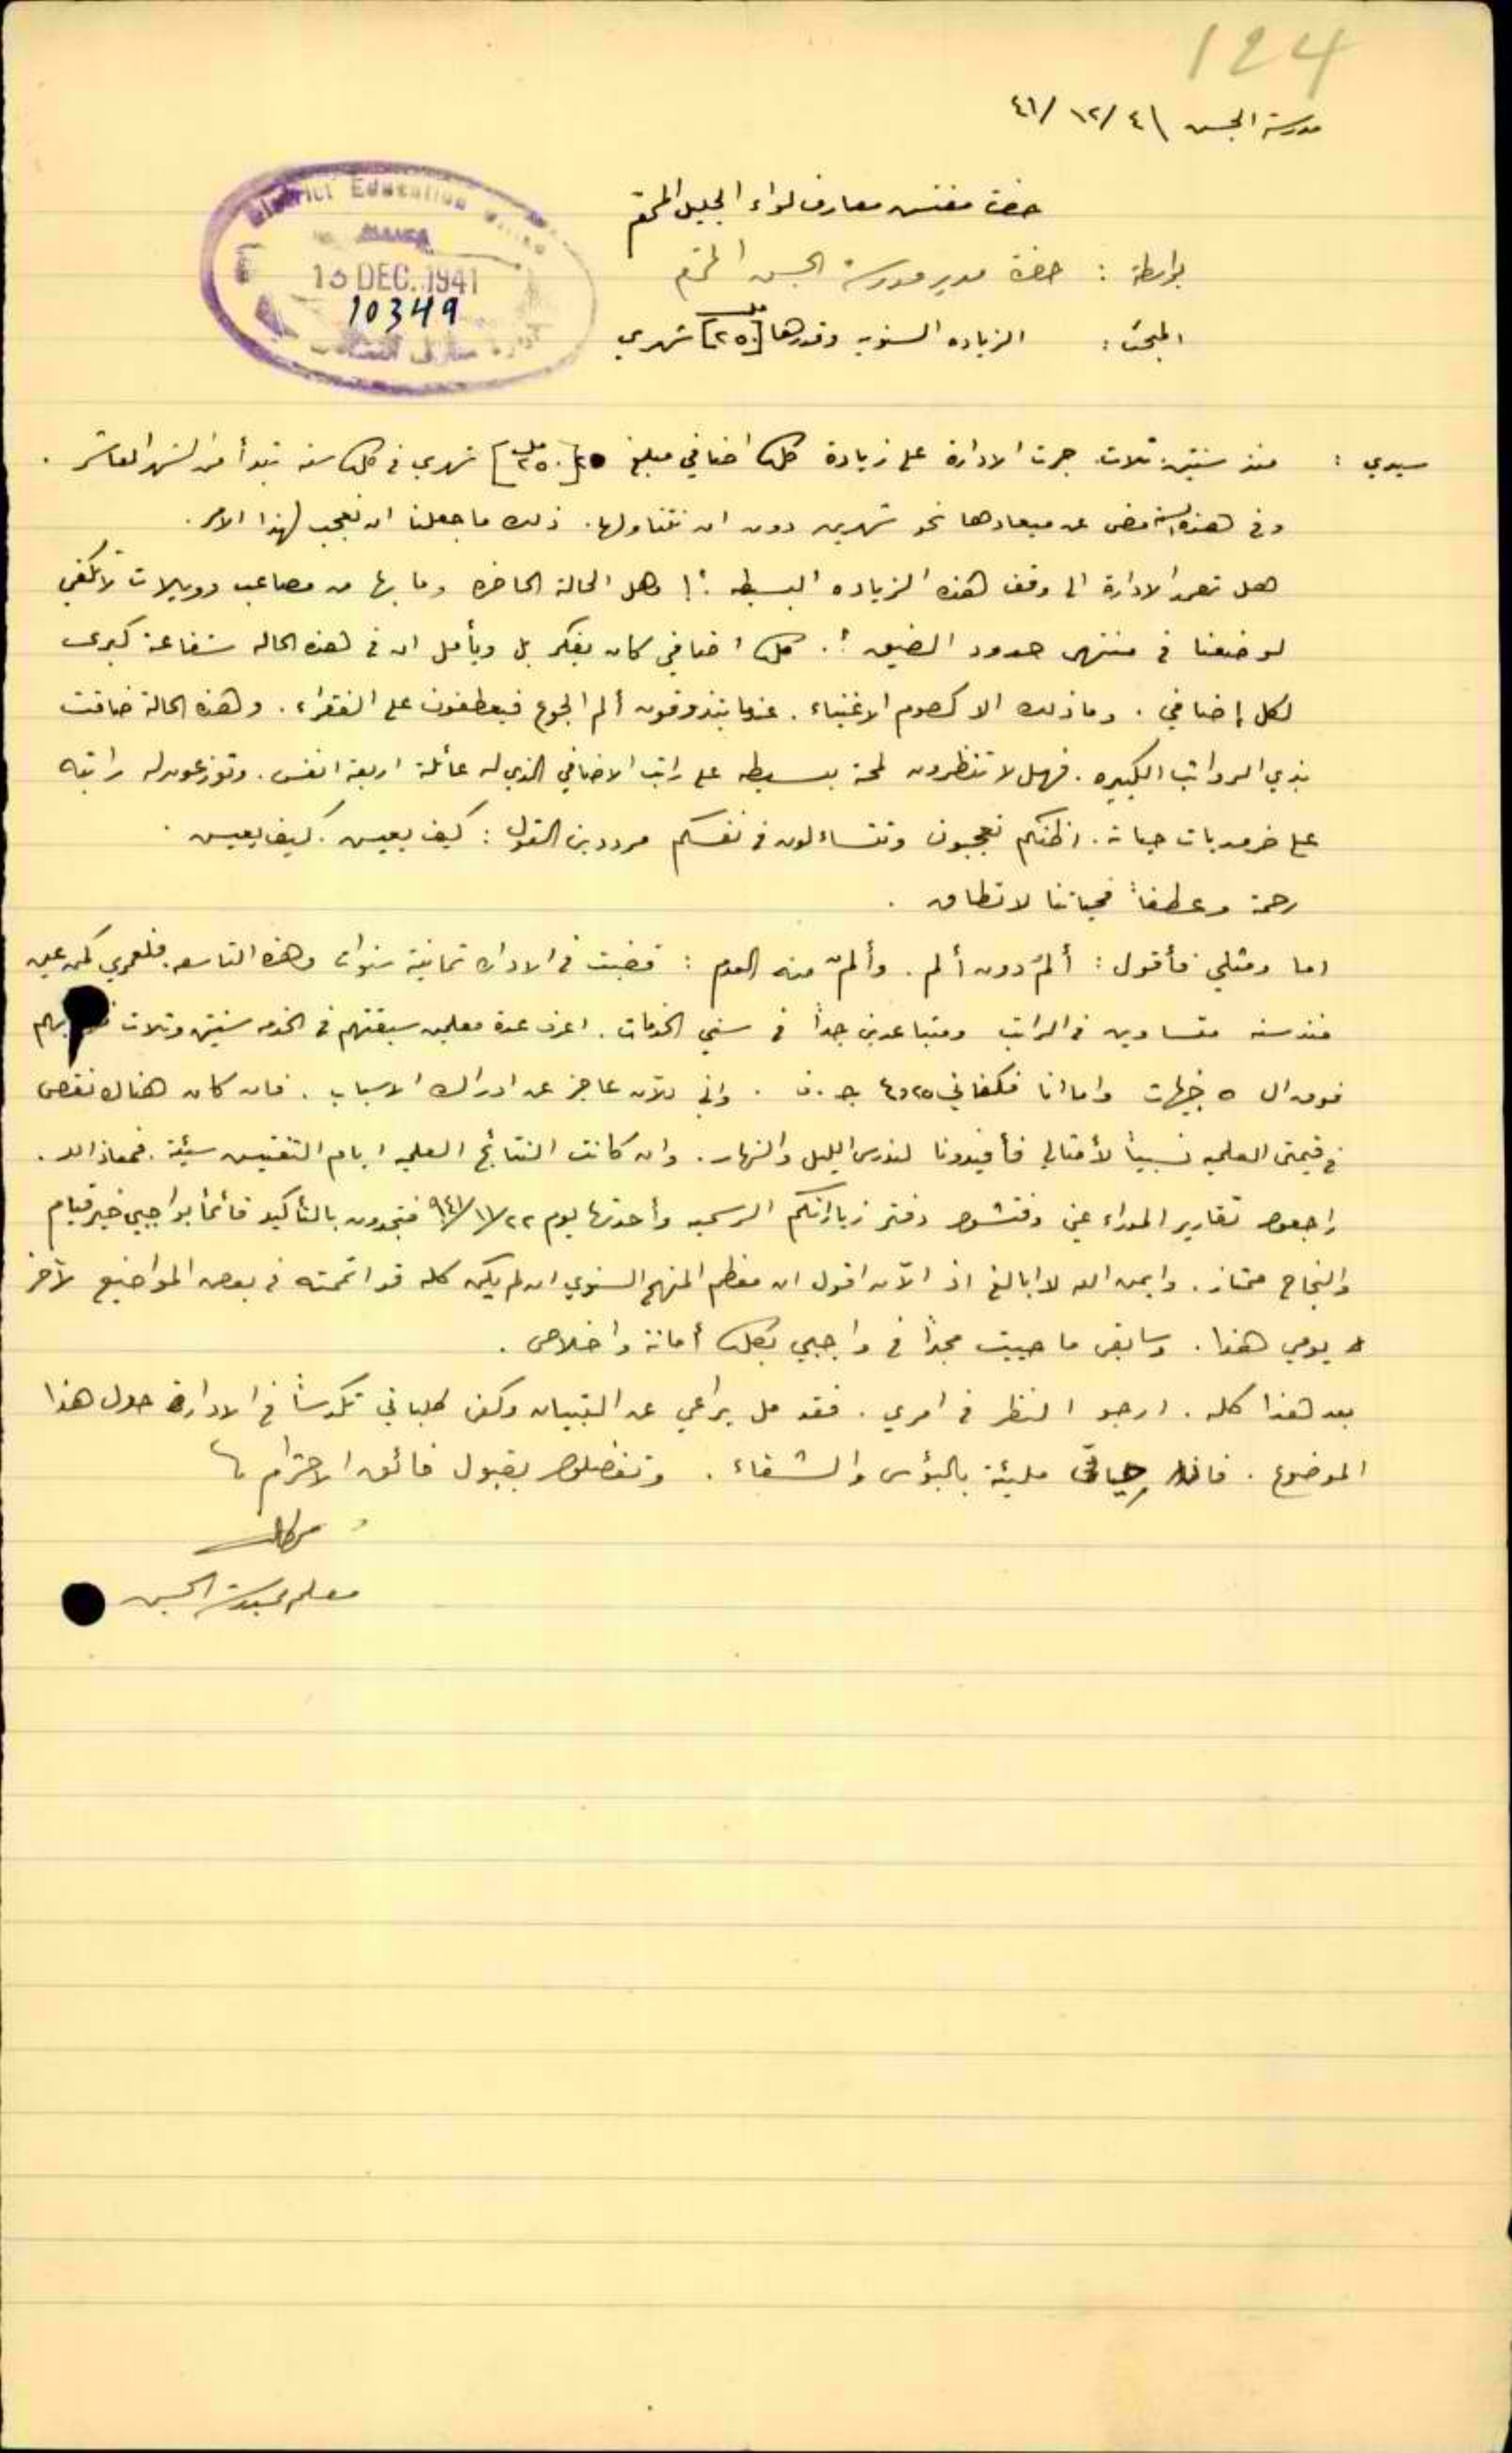 124
مدرسة الجسر ٤/١٢/٤١
حضرة مفتش معارف لواء الجليل المحترم
بواسطة : حضرة مدير مدرسة الجسر المحترم
المبحث : الزياده السنويه وقدرها [٢٥٠ مل] شهري
District Education Office
13 DEC. 1941
10349
سيدي : منذ سنتين ثلاث جرت الادارة على زيادة كل اضافي مبلغ [٢٥٠ مل] شهري في كل سنه تبدأ من الشهر العاشر .
وفي هذه السنة مضى عن ميعادها نحو شهرين دون ان نتناولها . ذلك ما جعلنا ان نعجب لهذا الامر .
هل تعمد الادارة الى وقف هذه الزياده البسيطه ؟! وهل الحالة الحاضره وما بها من مصاعب وويلات لا تكفي
لوضعنا في منتهى حدود الضيق ؟. كل اضافي كان يفكر بل ويأمل ان في هذه الحاله شفاعة كبرى
لكل إضافي . وما ذلك الا كصوم الاغنياء . عندما يتذوقون ألم الجوع فيعطفون على الفقراء . وهذه الحالة ضاقت
بذي الرواتب الكبيره . فهل لا تنظرون لمحة بسيطه على راتب الاضافي الذي له عائلة اربعة انفس . وتوزعون له راتبه
على ضروريات حياته . اظنكم تعجبون وتتساءلون في نفسكم مرددين القول : كيف يعيش . كيف يعيش .
رحمة وعطفاً فحياتنا لا تطاق .
اما ومثلي فأقول : ألمٌ دون ألم . وألمٌ منه العدم : قضيت في الاداره ثمانية سنوات وهذه التاسعه . فلعمري كمن عين
منذ سنه متساوين في الراتب ومتباعدين جداً في سني الخدمات . اعرف عدة معلمين سبقتهم في الخدمه سنتين وثلاث
فوق ال ٥ جنيهات واما انا فكفاني ٤٫٢٥ ج . ف . واني للآن عاجز عن ادراك الاسباب . فان كان هناك نقص
في قيمتي العلميه نسبياً لأمثالي فأفيدونا لندرس الليل والنهار . وان كانت النتائج العلميه ايام التفتيش سيئة . فمعاذ الله .
راجعوا تقارير المدراء عني وفتشوا دفتر زياراتكم الرسميه وأحدثها يوم ٢٢/١١/٩٤١ فتجدون بالتأكيد قائماً بواجبي خير قيام
والنجاح ممتاز . وايمن الله لا ابالغ اذ الآن اقول ان معظم المنهج السنوي ان لم يكن كله قد اتممته في بعض المواضيع لآخر
يومي هذا . وسابقى ما حييت مجداً في واجبي بكل أمانة واخلاص .
بعد هذا كله . ارجو النظر في امري . فقد مل يراعي عن التبيان وكفى طلباتي تكدساً في الادارة حول هذا
الموضوع . حياتي مليئة بالبؤس والشقاء . وتفضلوا بقبول فائق الاحترام
معلم بمدرسة الجسر